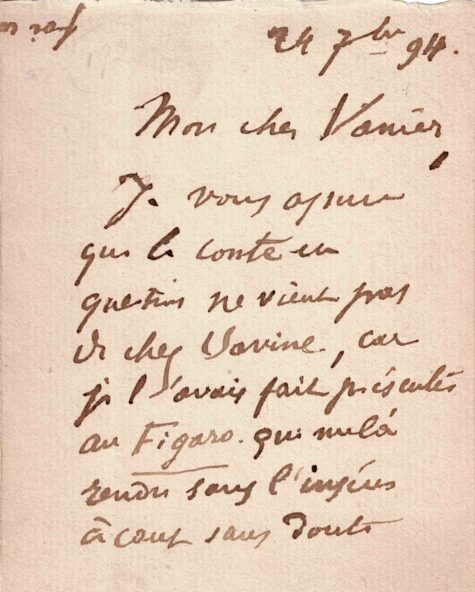 24 7bre 94.
Mon cher Vanier,
Je vous assure
que le conte en
question ne vient pas
de chez Savine, car
je l'avais fait présenter
au Figaro. qui me l'a
rendu sans l'insérer
à cause sans doute